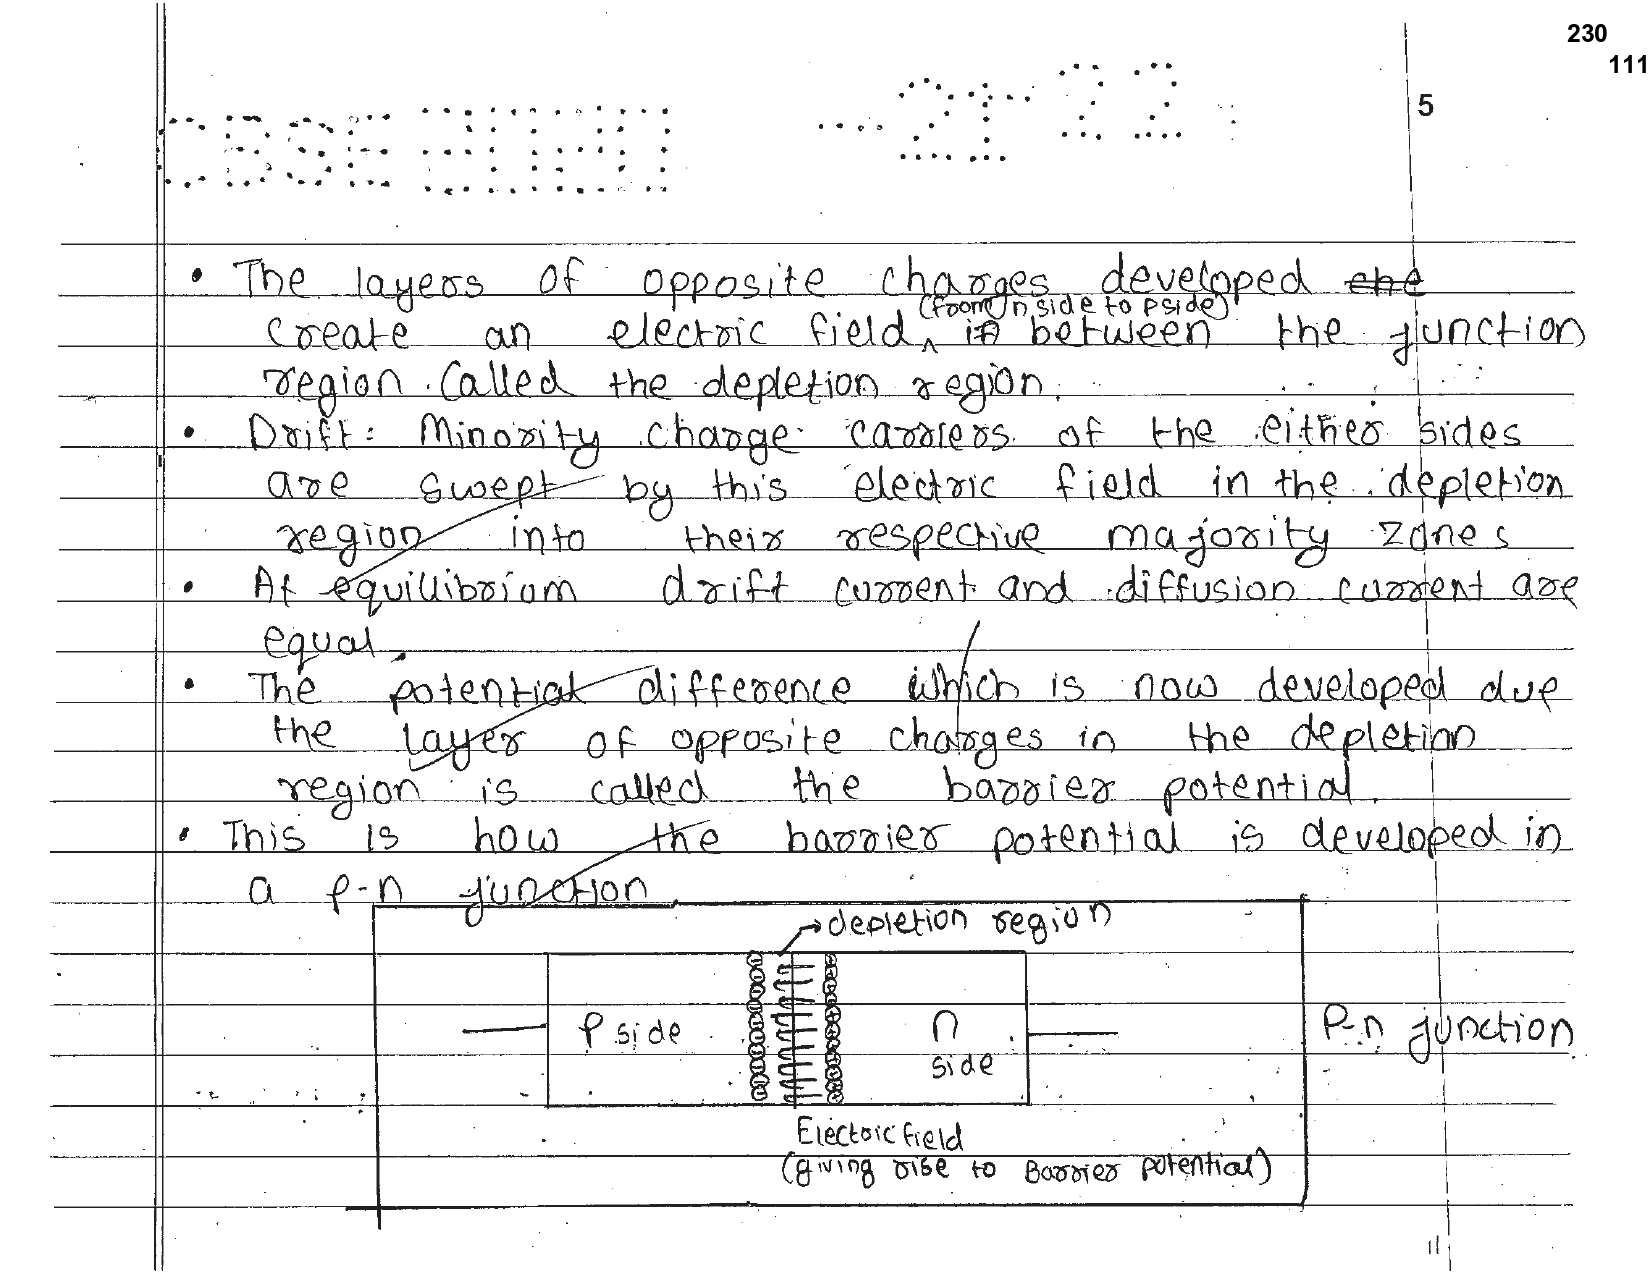 230
111
CBSE
21-22
5
• The layers of opposite charges developed the
(from n side to p side)
create an electric field, in between the junction
region. Called the depletion region.
• Drift: Minority charge carriers of the either sides
are swept by this electric field in the depletion
region into their respective majority zones
• At equillibrium drift current and diffusion current are
equal.
• The potential difference which is now developed due
the layer of opposite charges in the depletion
region is called the barrier potential.
• This is how the barrier potential is developed in
a p-n junction
depletion region
p side
n
side
P-n junction
Electric field
(giving rise to Barrier potential)